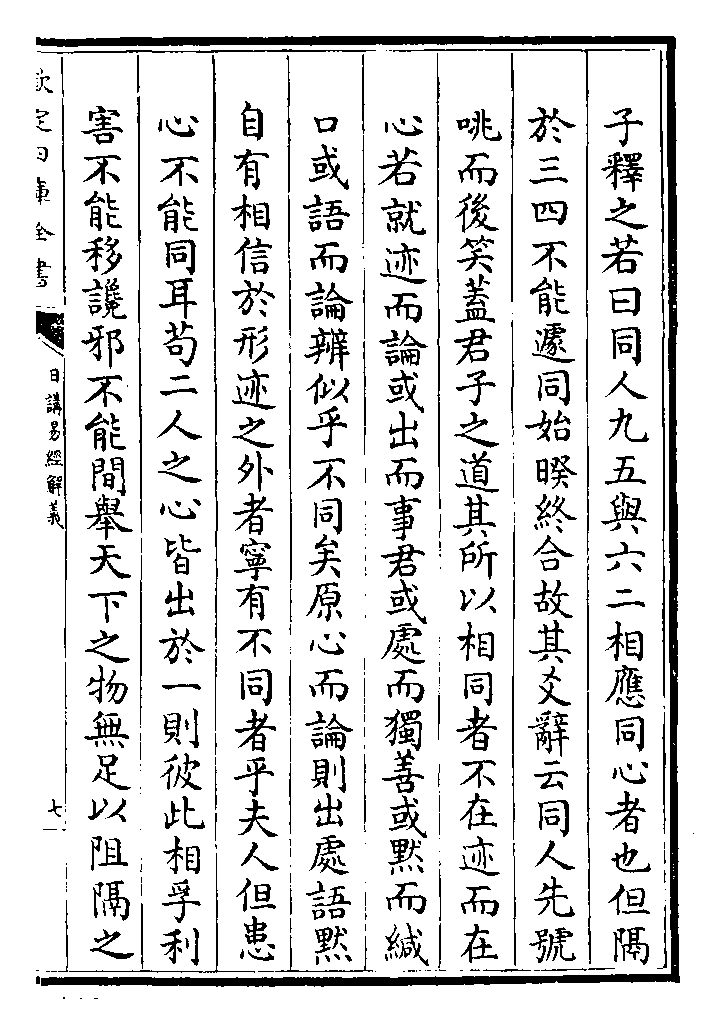 子釋之若曰同人九五與六二相應同心者也但隔
於三四不能遽同始暌終合故其爻辭云同人先號
咷而後笑蓋君子之道其所以相同者不在迹而在
心若就迹而論或出而事君或處而獨善或默而緘
口或語而論辨似乎不同矣原心而論則出處語默
自有相信於形迹之外者寧有不同者乎夫人但患
心不能同耳苟二人之心皆出於一則彼此相孚利
害不能移讒邪不能間舉天下之物無足以阻隔之
欽定四庫全書
日講易經解義
七